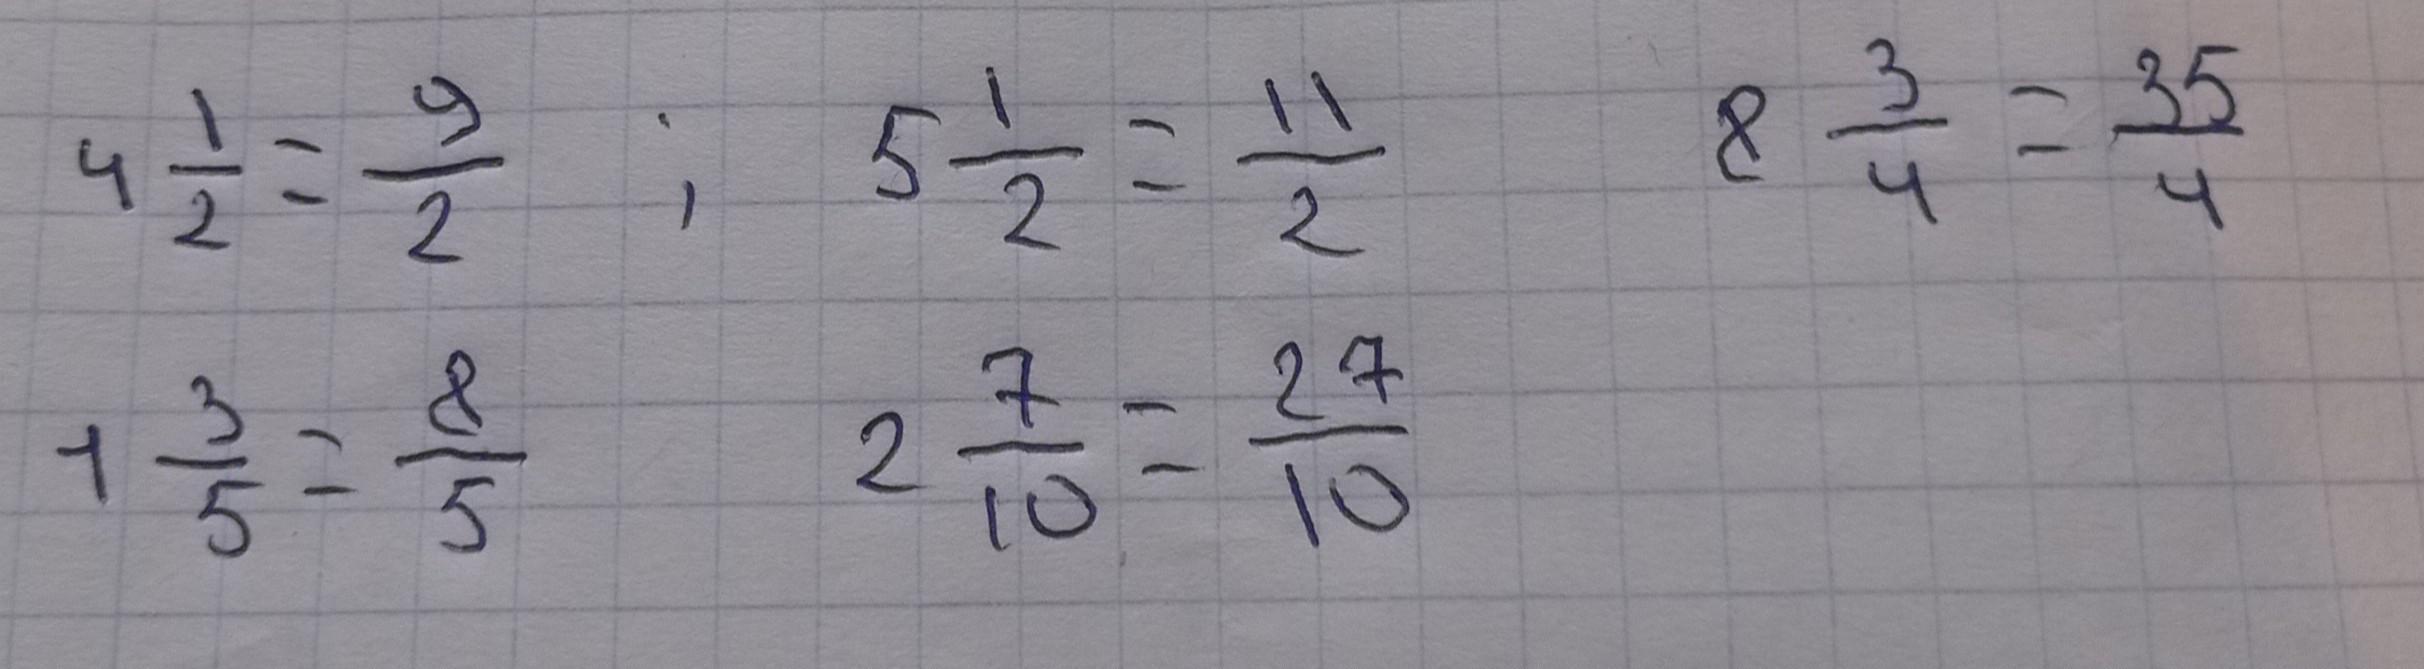 4 1/2 = 9/2 ; 5 1/2 = 11/2 8 3/4 = 35/4
1 3/5 = 8/5 2 7/10 = 27/10